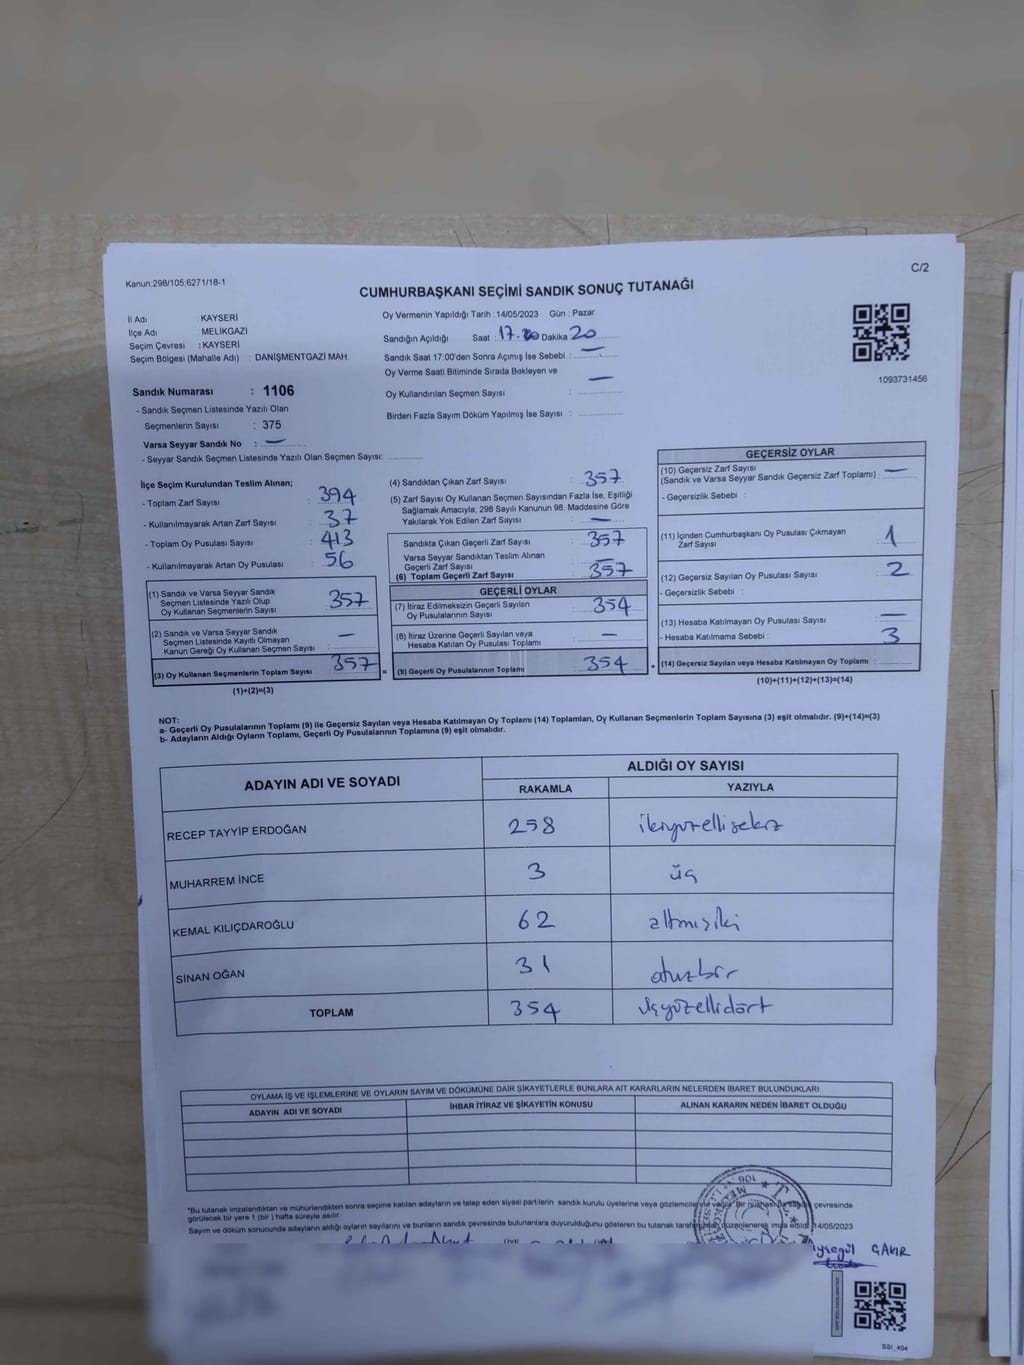 C/2
Kanun,298/105;6271/18-1
CUMHURBAŞKANI SEÇİMİ SANDIK SONUÇ TUTANAĞI
İl Adı KAYSERİ
İlçe Adı : MELİKGAZİ
Seçim Çevresi : KAYSERİ
Seçim Bölgesi (Mahalle Adı) : DANİŞMENTGAZİ MAH.
Sandık Numarası : 1106
- Sandık Seçmen Listesinde Yazılı Olan
Seçmenlerin Sayısı : 375
Varsa Seyyar Sandık No : —
- Seyyar Sandık Seçmen Listesinde Yazılı Olan Seçmen Sayısı:
Oy Vermenin Yapıldığı Tarih : 14/05/2023 Gün : Pazar
Sandığın Açıldığı Saat : 17-20 Dakika 20
Sandık Saat 17:00'den Sonra Açımış İse Sebebi : —
Oy Verme Saati Bitiminde Sırada Bekleyen ve
Oy Kullandırılan Seçmen Sayısı : —
Birden Fazla Sayım Döküm Yapılmış İse Sayısı :
1093731456
İlçe Seçim Kurulundan Teslim Alınan;
- Toplam Zarf Sayısı : 394
- Kullanılmayarak Artan Zarf Sayısı : 37
- Toplam Oy Pusulası Sayısı : 413
- Kullanılmayarak Artan Oy Pusulası : 56
(1) Sandık ve Varsa Seyyar Sandık
Seçmen Listesinde Yazılı Olup
Oy Kullanan Seçmenlerin Sayısı : 357
(2) Sandık ve Varsa Seyyar Sandık
Seçmen Listesinde Kayıtlı Olmayan
Kanun Gereği Oy Kullanan Seçmen Sayısı : —
(3) Oy Kullanan Seçmenlerin Toplam Sayısı : 357 =
(1)+(2)=(3)
(4) Sandıktan Çıkan Zarf Sayısı : 357
(5) Zarf Sayısı Oy Kullanan Seçmen Sayısından Fazla İse, Eşitliği
Sağlamak Amacıyla, 298 Sayılı Kanunun 98. Maddesine Göre
Yakılarak Yok Edilen Zarf Sayısı : —
Sandıkta Çıkan Geçerli Zarf Sayısı : 357
Varsa Seyyar Sandıktan Teslim Alınan
Geçerli Zarf Sayısı
(6) Toplam Geçerli Zarf Sayısı : 357
GEÇERLİ OYLAR
(7) İtiraz Edilmeksizin Geçerli Sayılan
Oy Pusulalarının Sayısı : 354
(8) İtiraz Üzerine Geçerli Sayılan veya
Hesaba Katılan Oy Pusulası Toplamı : —
(9) Geçerli Oy Pusulalarının Toplamı : 354 +
GEÇERSİZ OYLAR
(10) Geçersiz Zarf Sayısı
(Sandık ve Varsa Seyyar Sandık Geçersiz Zarf Toplamı) : —
- Geçersizlik Sebebi :
(11) İçinden Cumhurbaşkanı Oy Pusulası Çıkmayan
Zarf Sayısı : 1
(12) Geçersiz Sayılan Oy Pusulası Sayısı : 2
- Geçersizlik Sebebi :
(13) Hesaba Katılmayan Oy Pusulası Sayısı : —
- Hesaba Katılmama Sebebi : 3
(14) Geçersiz Sayılan veya Hesaba Katılmayan Oy Toplamı :
(10)+(11)+(12)+(13)=(14)
NOT:
a- Geçerli Oy Pusulalarının Toplamı (9) ile Geçersiz Sayılan veya Hesaba Katılmayan Oy Toplamı (14) Toplamları, Oy Kullanan Seçmenlerin Toplam Sayısına (3) eşit olmalıdır. (9)+(14)=(3)
b- Adayların Aldığı Oyların Toplamı, Geçerli Oy Pusulalarının Toplamına (9) eşit olmalıdır.
ADAYIN ADI VE SOYADI ALDIĞI OY SAYISI
RAKAMLA YAZIYLA
RECEP TAYYİP ERDOĞAN 258 ikiyüzellisekiz
MUHARREM İNCE 3 üç
KEMAL KILIÇDAROĞLU 62 altmışiki
SİNAN OĞAN 31 otuzbir
TOPLAM 354 üçyüzellidört
OYLAMA İŞ VE İŞLEMLERİNE VE OYLARIN SAYIM VE DÖKÜMÜNE DAİR ŞİKAYETLERLE BUNLARA AİT KARARLARIN NELERDEN İBARET BULUNDUKLARI
ADAYIN ADI VE SOYADI İHBAR İTİRAZ VE ŞİKAYETİN KONUSU ALINAN KARARIN NEDEN İBARET OLDUĞU
*Bu tutanak imzalandıktan ve mühürlendikten sonra seçime katılan adayların ve talep eden siyasi partilerin sandık kurulu üyelerine veya gözlemcilerine verilir. Bir çevresinde
görülecek bir yere 1 (bir) hafta süreyle asılır.
Sayım ve döküm sonucunda adayların aldığı oyların sayılarını ve bunların sandık çevresinde bulunanlara duyurulduğunu gösteren bu tutanak düzenlenerek imza edildi. 14/05/2023
Ayşegül ÇAKIR
SSI_404